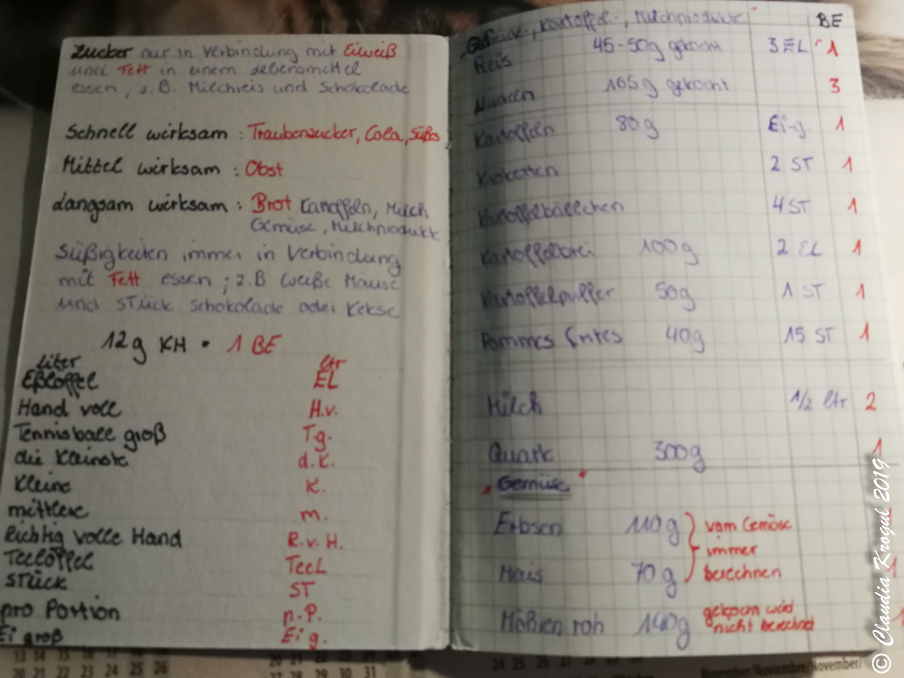 Zucker nur in Verbindung mit Eiweiß
und Fett in einem Lebensmittel
essen, z.B. Milchreis und Schokolade
Schnell wirksam : Traubenzucker, Cola, Süßes
Mittel wirksam : Obst
Langsam wirksam : Brot Kartoffeln, Milch
Gemüse, Milchprodukte
Süßigkeiten immer in Verbindung
mit Fett essen ; z.B weiße Mäuse
und Stück Schokolade oder Kekse
12g KH = 1 BE
Liter ltr
Eßlöffel EL
Hand voll H.v.
Tennisball groß T.g.
die Kleinste d.K.
Kleine K.
mittlere m.
Richtig volle Hand R.v.H.
Teelöffel TeeL
Stück ST
pro Portion p.P.
Ei groß Ei g.
"Getreide-, Kartoffel-, Milchprodukte" BE
Reis 45-50g gekocht 3 EL 1
Nudeln 165g gekocht 3
Kartoffeln 80g Ei-g. 1
Kroketten 2 ST 1
Kartoffelbällchen 4 ST 1
Kartoffelbrei 100g 2 EL 1
Kartoffelpuffer 50g 1 ST 1
Pommes frites 40g 15 ST 1
Milch 1/2 ltr 2
Quark 300g 1
"Gemüse"
Erbsen 110g } vom Gemüse
immer
Mais 70g berechnen 1
Möhren roh 140g gekocht wird
nicht berechnet 1
© Claudia Krogul 2019
13 14 15 16 17 18 19
20 21 22 23 24 25 26
November/Noviembre/November/